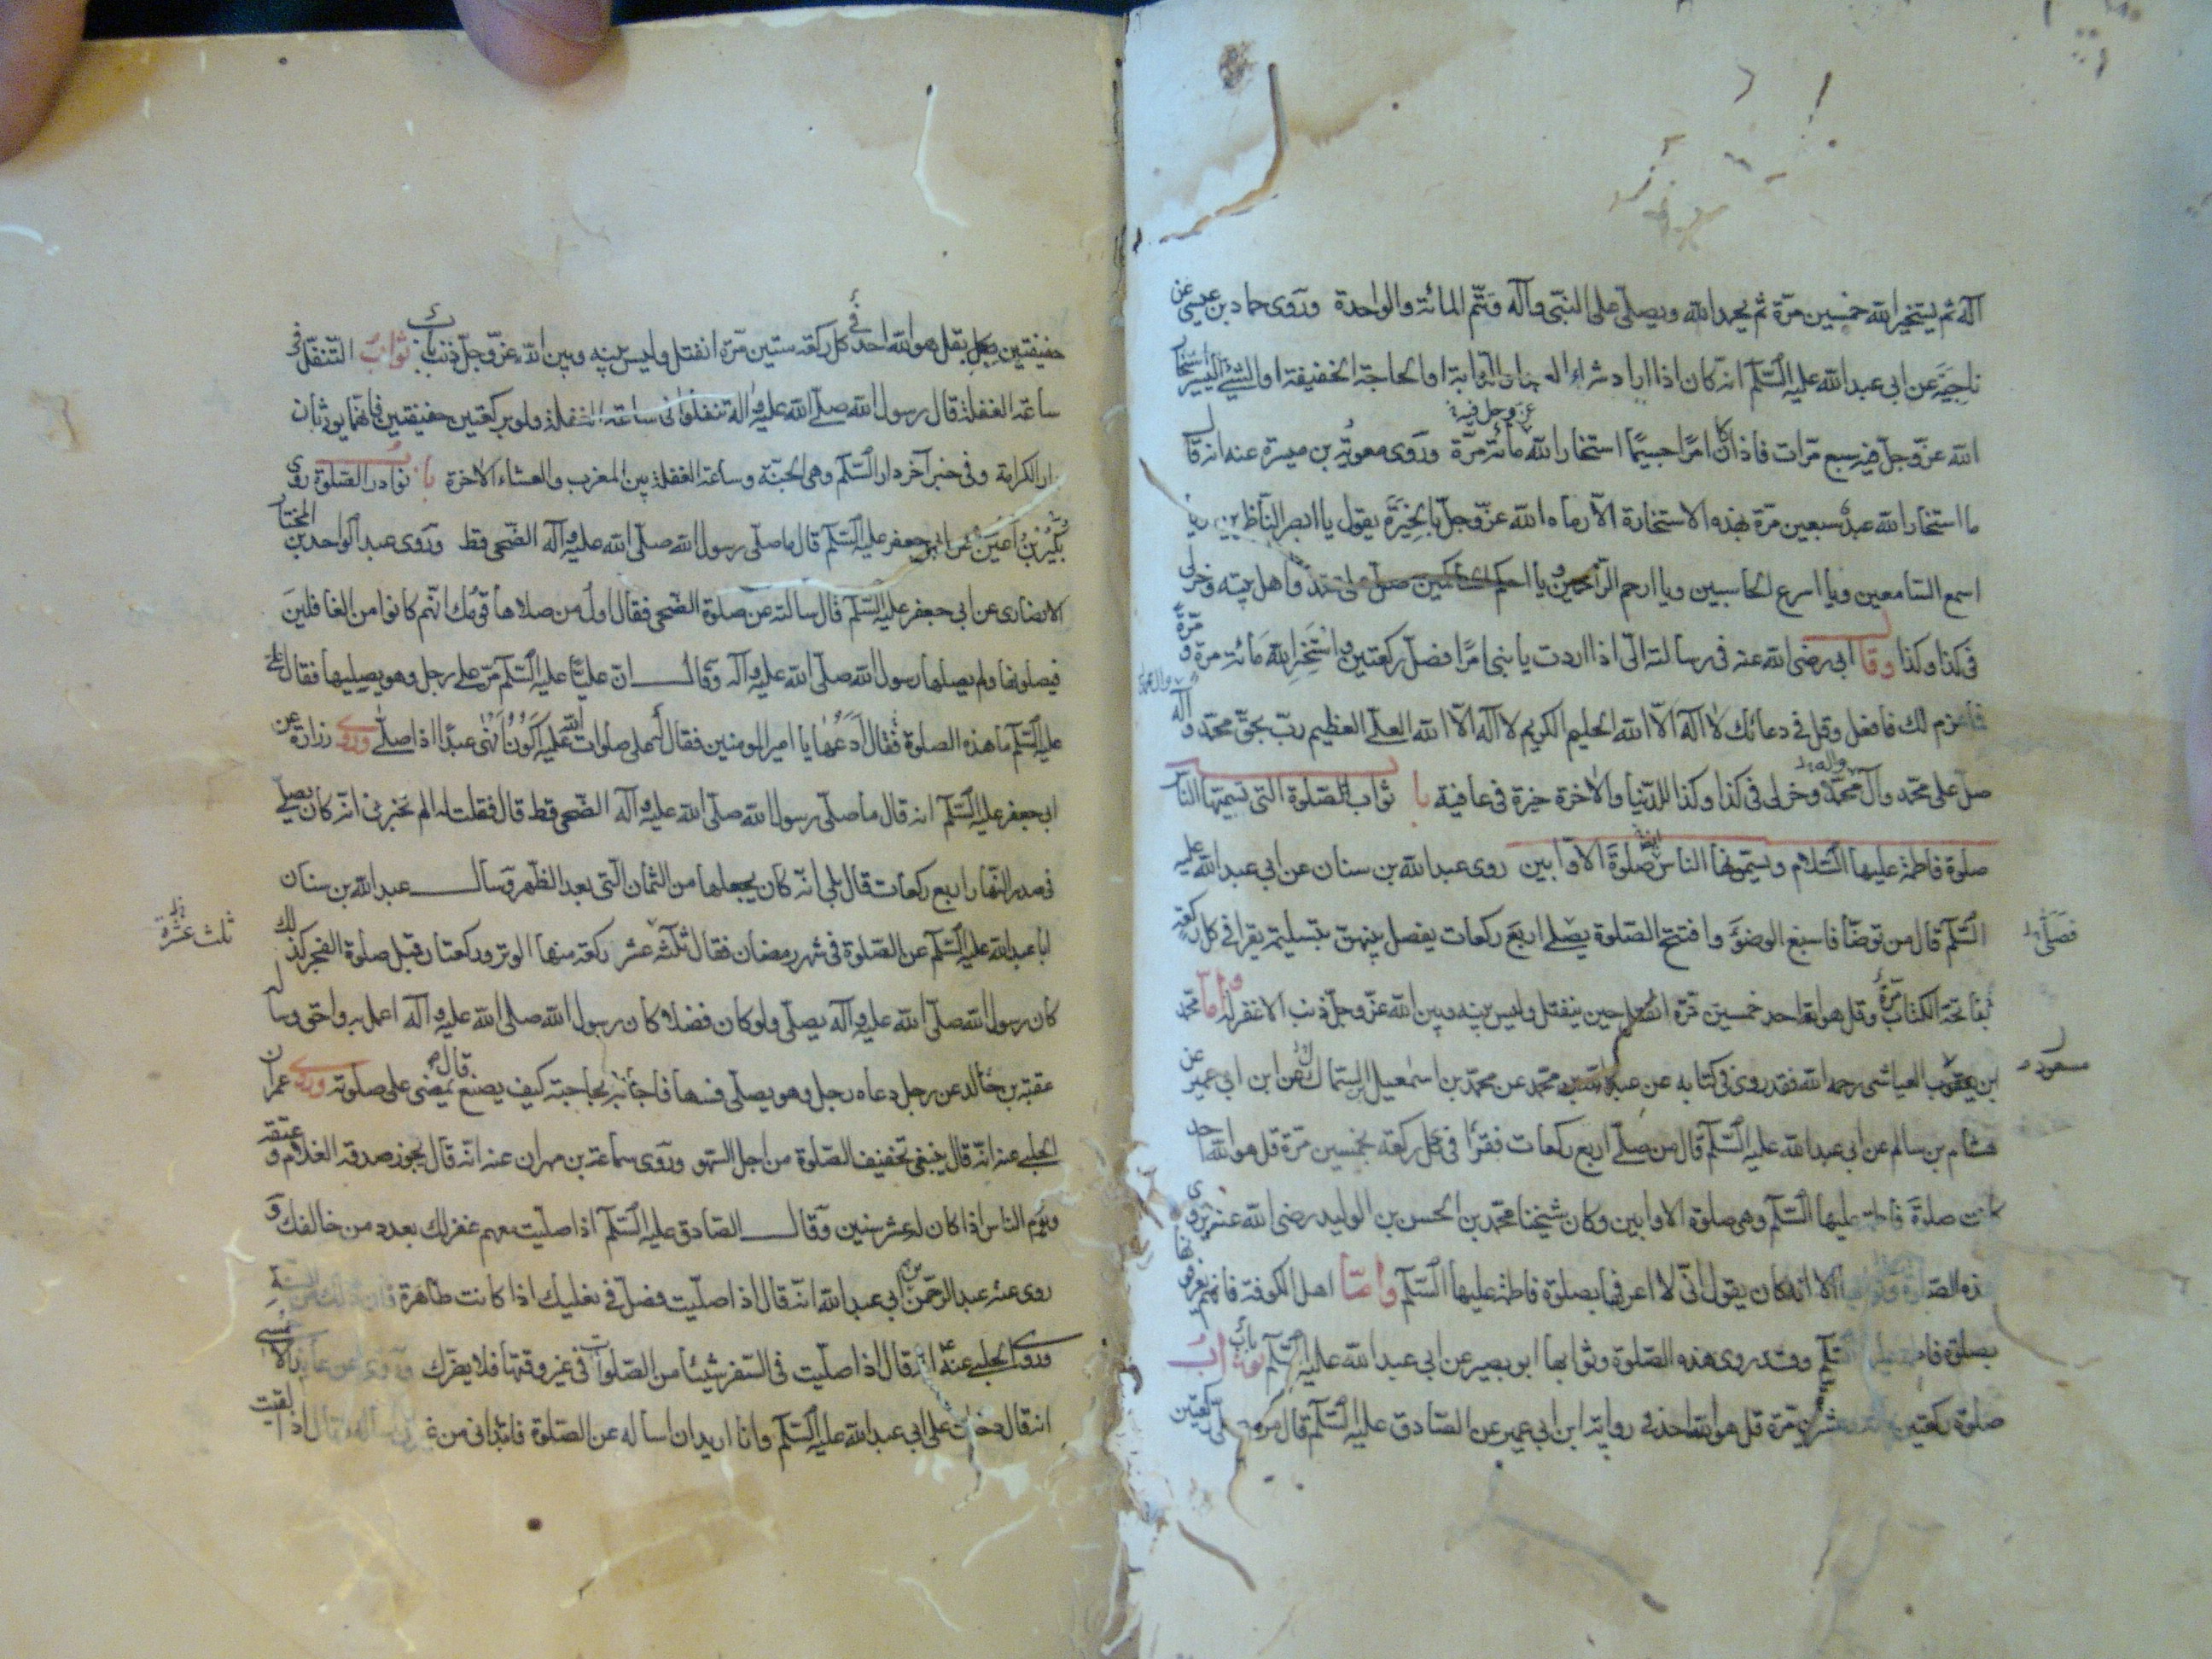 آله ثم يستخير الله خمسين مرّة ثم يحمد الله ويصلّي على النبّي وآله وتتّم المائة والواحدة وروى حماد بن عيسى عن
ناجية عن ابي عبد الله عليه السّلم انه كان اذا اراد شراء الدابة او الحاجة الخفيفة او الشئ اليسير استخار
الله عزّ وجلّ فيه سبع مرّات فاذا كان امرًا جسيمًا استخار الله عزّ وجل فيه مائة مرّة وروى معوية بن ميسرة عنه انه قال
ما استخار الله عبدٌ سبعين مرّة بهذه الاستخارة الّا رماه الله عزّ وجلّ بالخِيَرَة يقول يا ابصر النّاظرين ويا
اسمع السّامعين ويا اسرع الحاسبين ويا ارحم الرّاحمين ويا احكم الحاكمين صلّ على محمّد واهل بيته وخرلى
فى كذا وكذا وقال ابى رضى الله عنه فى رسالته الىّ اذا اردت يا بنى امرًا فصلّ ركعتين واستخر الله مائة مرة ومرّة
فما عزم لك فافعل وقل فى دعائك لا اله الّا الله الحليم الكريم لا اله الّا الله العلىّ العظيم ربّ بحقّ محمّد وآله
صلّ على محمّد وآل محمّد وخرلى فى كذا وكذا للدّنيا والاخرة خيرة فى عافية باب ثواب الصّلوة التى تسمّيها النّاس
صلوة فاطمة عليها السّلام ويسمّونها الناس ايضا صلوة الاوّابين روى عبد الله بن سنان عن ابى عبد الله عليه
السّلم قال من توضّأ فاسبغ الوضوء وافتتح الصّلوة يصلّى اربع ركعات يفصل بينهنّ بتسليم يقرا فى كل ركعة
فصلّى
بفاتحة الكتاب مرّة وقل هو الله احد خمسين مرّة انفتل حين ينفتل وليس بينه وبين الله عزّ وجلّ ذنب الا غفر له وامّا محمّد
ابن يعقوب العياشى رحمه الله فقد روى فى كتابه عن عبد الله بن محمّد عن محمّد بن اسمعيل بن السّماك عن ابن ابى عمير عن
مسعود
هشام بن سالم عن ابى عبد الله عليه السّلم قال من صلّى اربع ركعات فقرأ فى كل ركعة بخمسين مرّة قل هو الله احد
كانت صلوة فاطمة عليها السّلم وهى صلوة الاوابين وكان شيخنا محمّد بن الحسن بن الوليد رضى الله عنه يروى
هذه الصّلوة وثوابها الّا انه كان يقول انّى لا اعرفها بصلوة فاطمة عليها السّلم وامّا اهل الكوفة فانهم يعرفونها
بصلوة فاطمة عليها السّلم وقد روى هذه الصّلوة وثوابها ابو بصير عن ابى عبد الله عليه السّلم باب ثواب
صلوة ركعتين بمائة وعشرين مرّة قل هو الله احد فى رواية ابن ابى عمير عن الصّادق عليه السّلم قال من صلّى ركعتين
خفيفتين بقل هو الله احد فى كل ركعة ستّين مرّة انفتل وليس بينه وبين الله عزّ وجلّ ذنب باب ثواب التّنفّل فى
ساعة الغفلة قال رسول الله صلّى الله عليه وآله تنفلوا فى ساعة الغفلة ولو بركعتين خفيفتين فانّهما يورثان
دار الكرامة وفى خبر آخر دار السّلم وهى الجنّة وساعة الغفلة بين المغرب والعشاء الاخرة باب نوادر الصّلوة روى
بكير بن اعين عن ابى جعفر عليه السّلم قال ما صلّى رسول الله صلّى الله عليه وآله الضّحى قط وروى عبد الواحد بن المختار
الانصارى عن ابى جعفر عليه السّلم قال سالته عن صلوة الضّحى فقال اول من صلاها قومك انّهم كانوا من الغافلين
فيصلونها ولم يصلها رسول الله صلّى الله عليه وآله وقال انّ عليًّا عليه السّلم مرّ على رجل وهو يصلّيها فقال علىّ
عليه السّلم ما هذه الصلوة فقال ادعها يا امير المومنين فقال علىّ صلوات الله عليه اكون انهى عبدًا اذا صلّى وروى زرارة عن
ابى جعفر عليه السّلم انه قال ما صلّى رسول الله صلّى الله عليه وآله الضّحى قط قال فقلت له الم تخبرنى انّه كان يصلّى
فى صدر النّهار اربع ركعات قال بلى انّه كان يجعلها من الثمان الّتى بعد الظّهر وسال عبد الله بن سنان
ابا عبد الله عليه السّلم عن الصّلوة فى شهر رمضان فقال ثلثة عشر ركعة منها الوتر وركعتان قبل صلوة الفجر كذلك
ثلث عشرة
كان رسول الله صلّى الله عليه وآله يصلّى ولو كان فضلا كان رسول الله صلى الله عليه وآله اعمل به واحق وسال
عقبة بن خالد عن رجل دعاه رجل وهو يصلّى فسها فاجابه بحاجته كيف يصنع قال يمضى على صلوته وروى عمران
الحلبى عنه انّه قال ينبغى تخفيف الصّلوة من اجل السّهو وروى سماعة بن مهران عنه انّه قال يجوز صدقة الغلام وعتقه
ويؤم الناس اذا كان له عشر سنين وقال الصّادق عليه السّلم اذا صلّيت معهم غفر لك بعدد من خالفك و
روى عنه عبد الرّحمن بن ابى عبد الله انّه قال اذا صلّيت فصلّ فى نعليك اذا كانت طاهرة فان ذلك من السّنّة
وروى الحلبى عنه انه قال اذا صلّيت فى السّفر شيئًا من الصّلوات فى غير وقتها فلا يضرّك وروى عن عايذ الاحمسى
انه قال دخلت على ابى عبد الله عليه السّلم وانا اريد ان اساله عن الصّلوة فابتدأنى من غير ان اساله فقال اذا لقيت